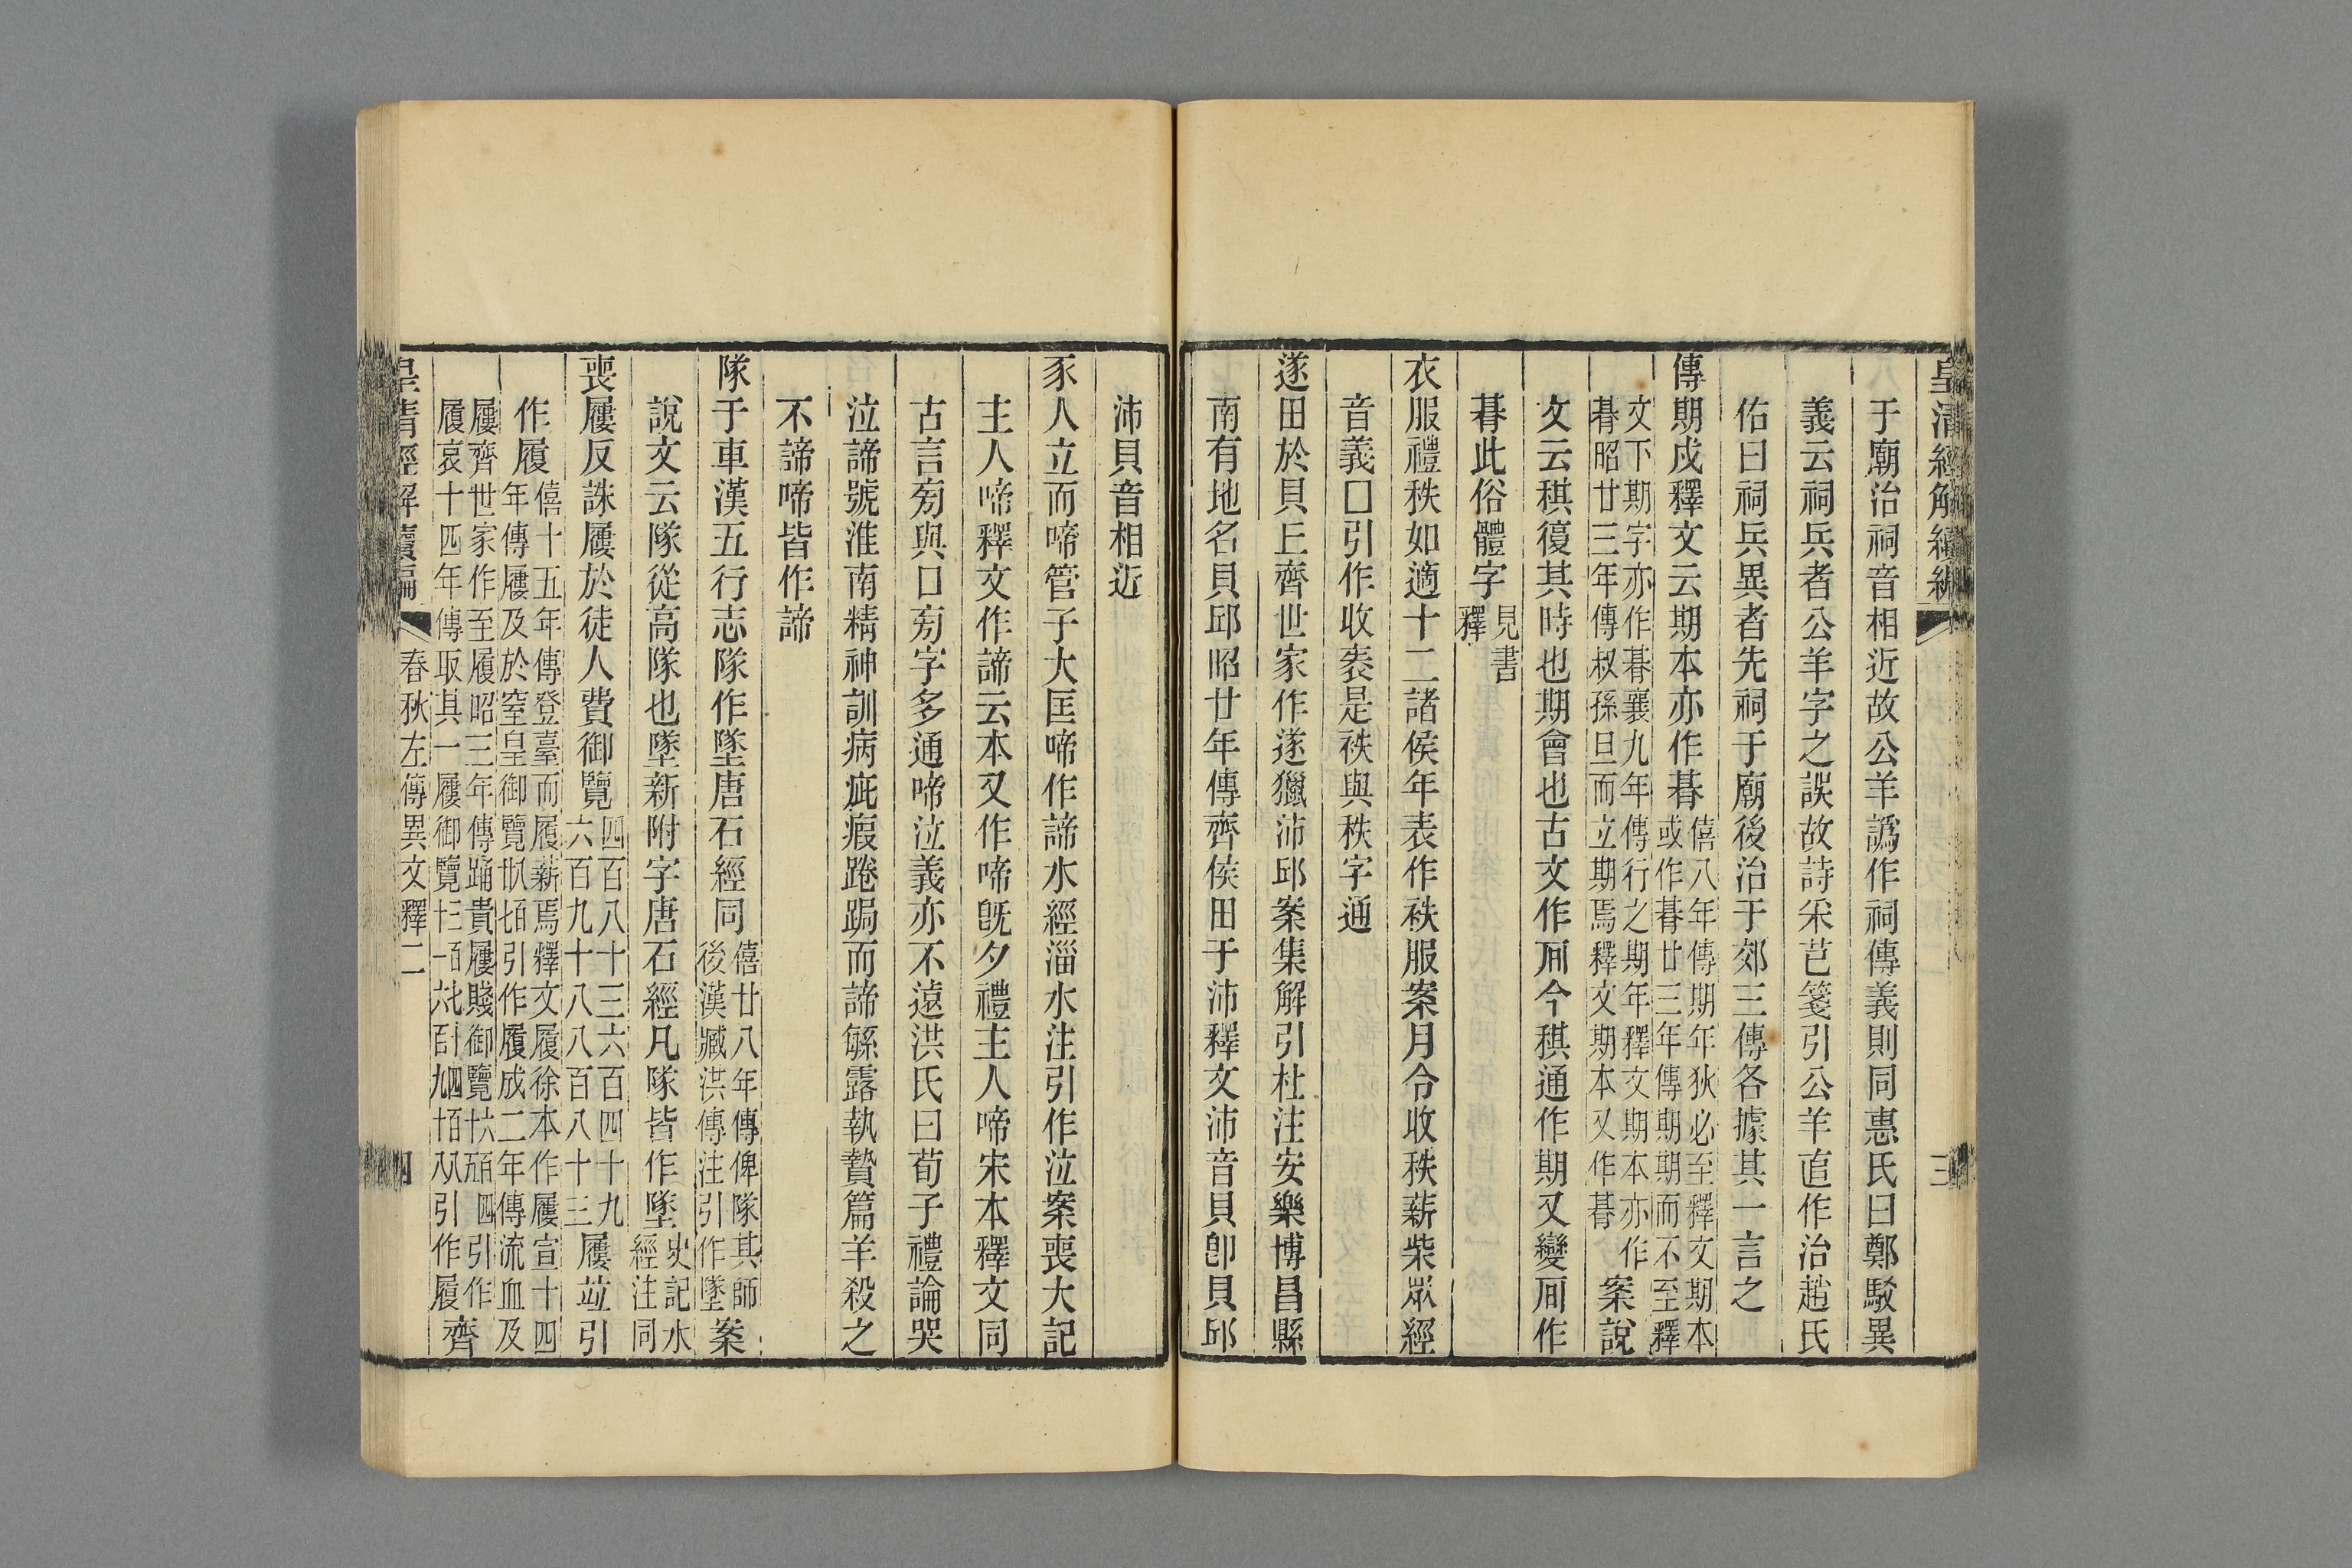 皇清經解續編
三
于廟治祠音相近故公羊譌作祠傳義則同惠氏曰鄭駁異
義云祠兵者公羊字之誤故詩采芑箋引公羊直作治趙氏
佑曰祠兵異者先祠于廟後治于郊三傳各據其一言之
傳期戍釋文云期本亦作朞僖八年傳期年狄必至釋文期本或作朞廿三年傳期期而不至釋
文下期字亦作朞襄九年傳行之期年釋文期本亦作朞昭廿三年傳叔孫旦而立期焉釋文期本又作朞案說
文云稘復其時也期會也古文作𠔃今稘通作期又變𠔃作
朞此俗體字見書釋
衣服禮秩如適十二諸侯年表作袟服案月令收秩薪柴眾經
音義口引作收袠是袟與秩字通
遂田於貝丘齊世家作遂獵沛邱案集解引杜注安樂博昌縣
南有地名貝邱昭廿年傳齊侯田于沛釋文沛音貝卽貝邱
沛貝音相近
豕人立而啼管子大匡啼作諦水經淄水注引作泣案喪大記
主人啼釋文作諦云本又作啼旣夕禮主人啼宋本釋文同
古言旁與口旁字多通啼泣義亦不遠洪氏曰荀子禮論哭
泣諦號淮南精神訓病疵瘕踡跼而諦緐露執贄篇羊殺之
不諦啼皆作諦
隊于車漢五行志隊作墜唐石經同僖廿八年傳俾隊其師後漢臧洪傳注引作墜案
說文云隊從高隊也墜新附字唐石經凡隊皆作墜史記水經注同
喪屨反誅屨於徒人費御覽四百八十三六百四十九六百九十八八百八十三屨竝引
作履僖十五年傳登臺而履薪焉釋文履徐本作屨宣十四年傳屨及於窒皇御覽引作履成二年傳流血及
屨齊世家作至履昭三年傳踊貴屨賤御覽引作履哀十四年傳取其一屨御覽引作履齊
皇清經解續編
春秋左傳異文釋二
四